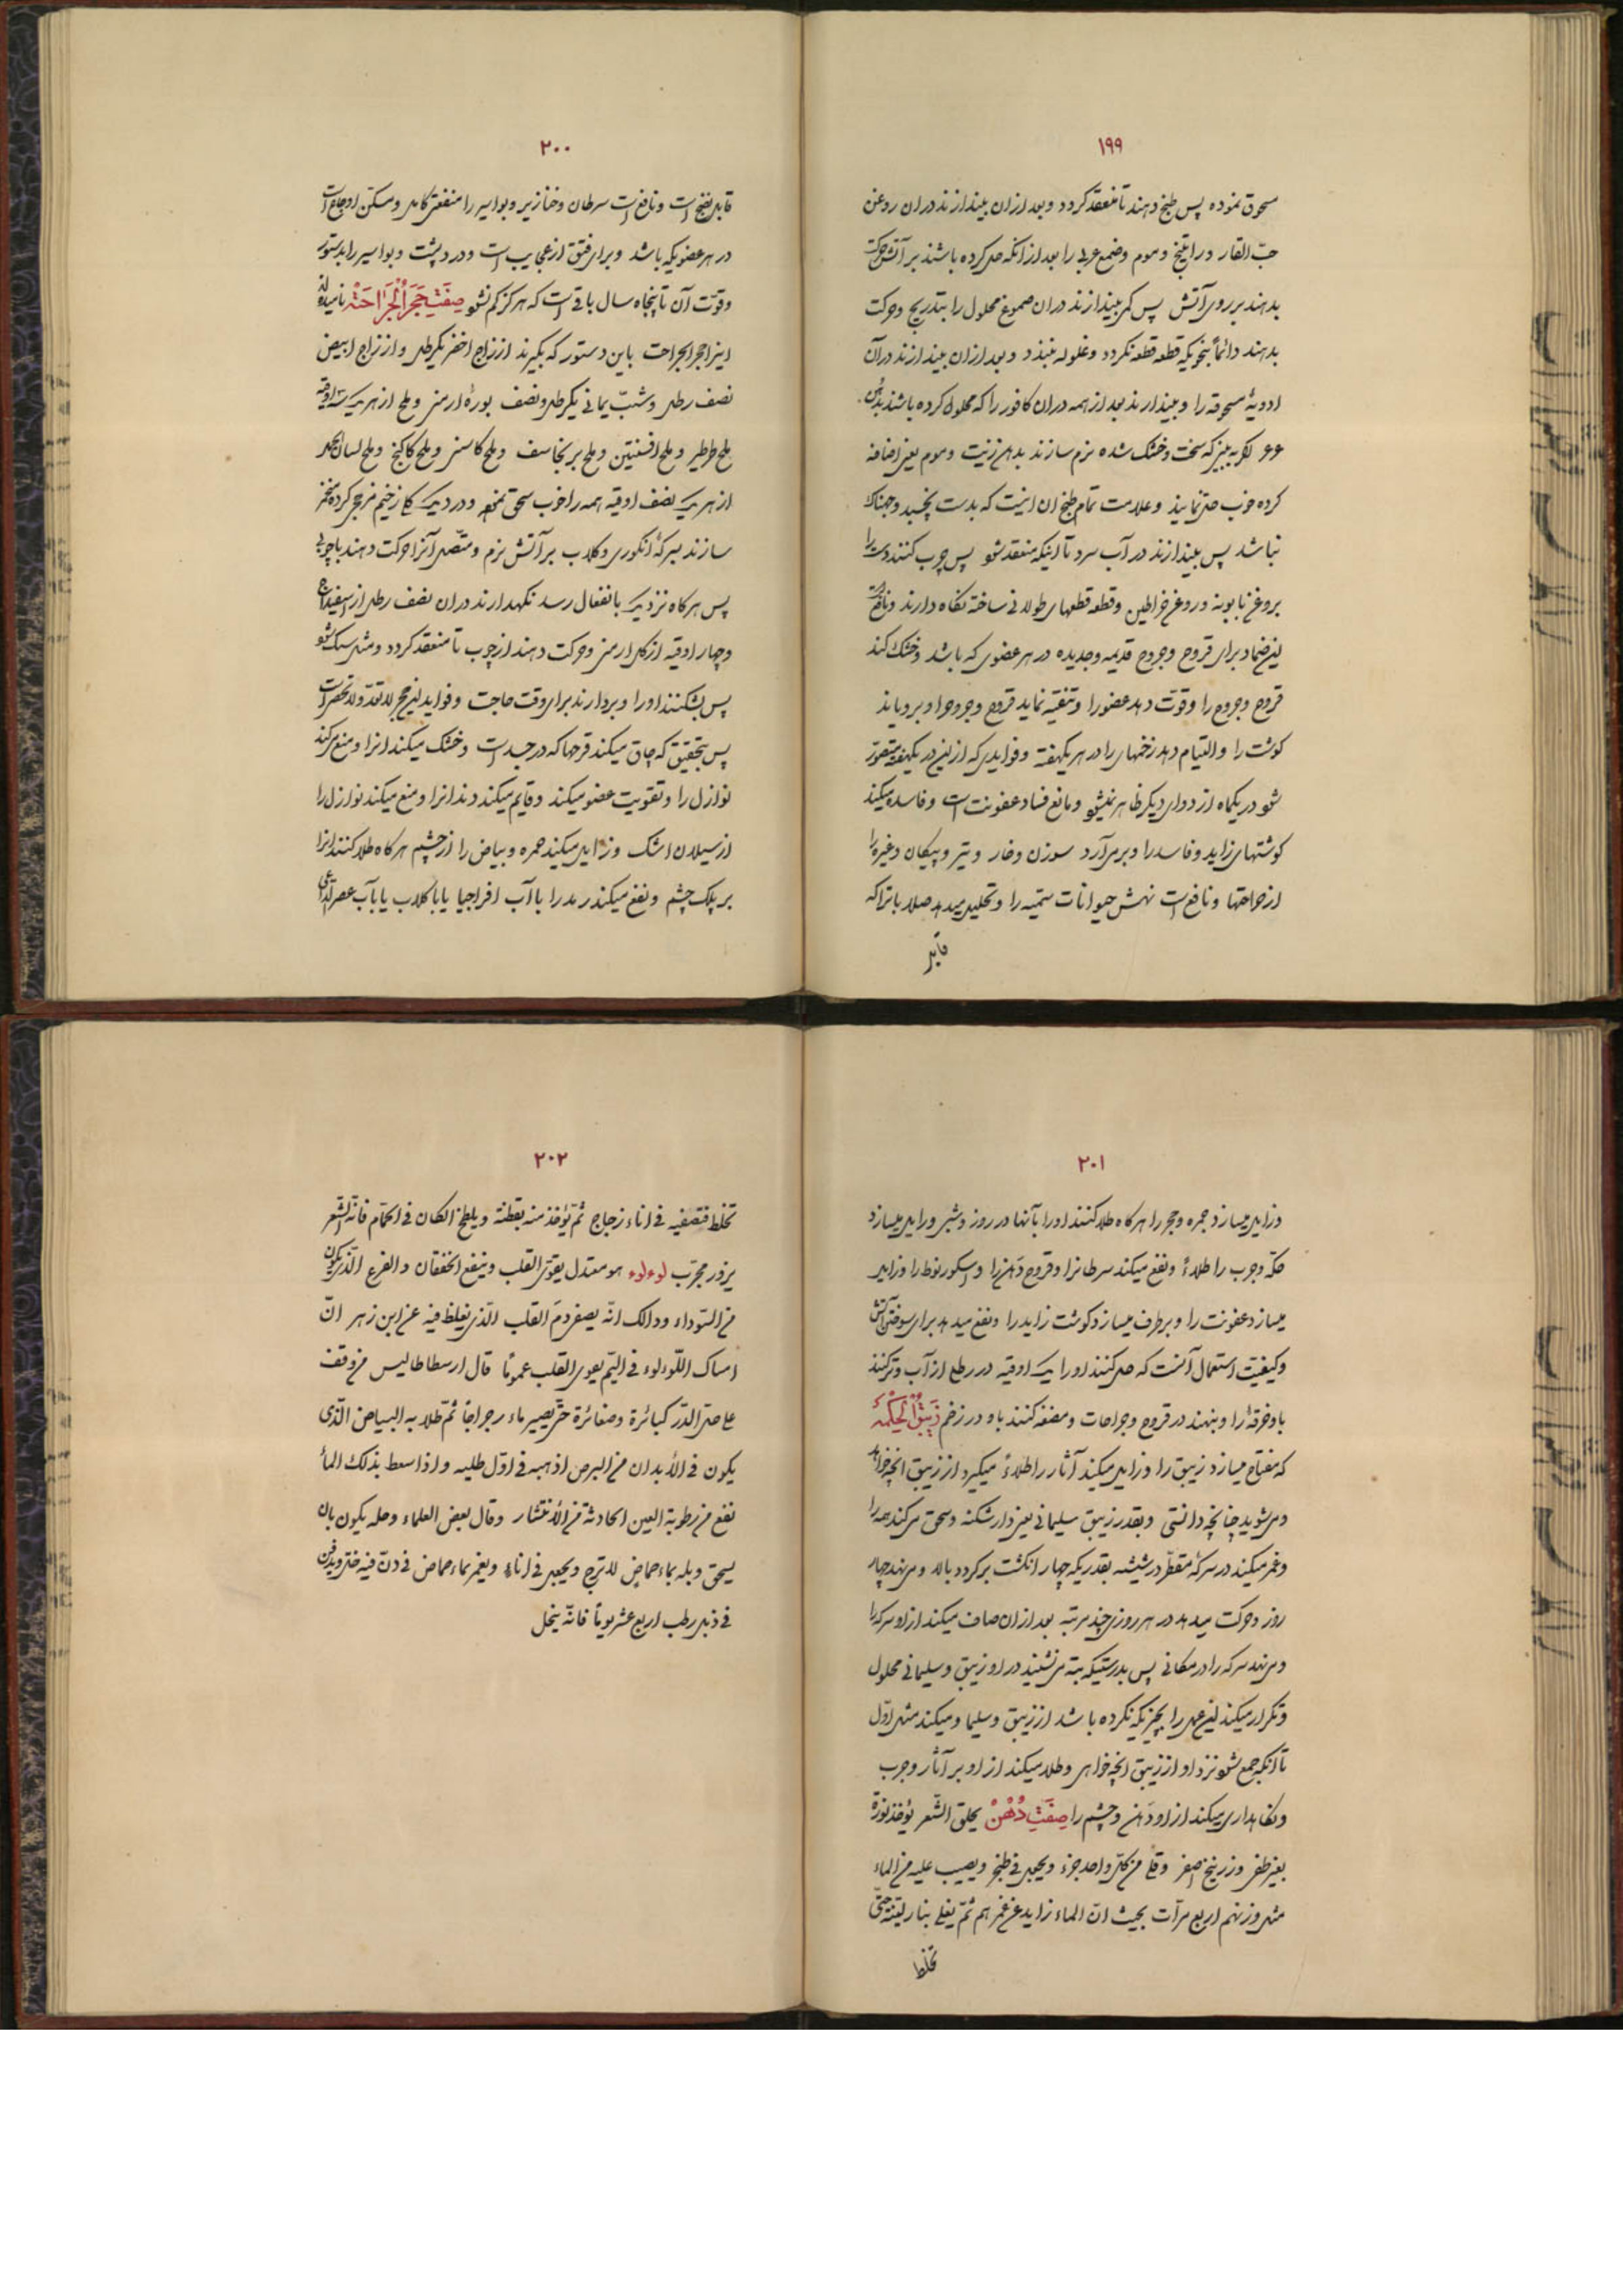 ۱۹۹
مسحوق نموده پس طبخ دهند تا منعقد کردد و بعد ازان بیندازند دران روغن
حبّ الغار و راتینج و موم و صمغ عربی را بعد از انکه حل کرده باشند بر آتش و حرکت
بدهند بر روی آتش پس کم بیندازند دران صموغ محلول را بتدریج و حرکت
بدهند دائماً بنحویکه قطعه قطعه نکردد و غلوله نبندد و بعد ازان بیندازند در آن
ادویهٔ مسحوقه را و بیندازند بعد از همه دران کافور را که محلول کرده باشند بدهن
عرعر اکر به بینی که سخت و خشک شده نرم سازند بدهن زیت و موم یعنی اضافه
کرده خوب حل نمایند و علامت تمام طبخ ان اینست که بدست نچسبد و چنانکه
نباشد پس بیندازند در آب سرد تا اینکه منعقد شو پس چرب کنند دست را
بروغن بابونه و روغن خراطین و قطعه قطعهای طولانی ساخته نکاه دارند و نافع است
این ضماد برای قروح و جروح قدیمه و جدیده در هر عضوی که باشد و خشک کند
قروح و جروح را و قوّت دهد عضو را و تنقیه نماید قروح و جروح را و برویاند
کوشت را و التیام دهد زخمهای را در هر یکهفته و فوایدی که از این در یکهفته متصوّر
شو در یکماه از دوای دیکر ظاهر نمیشو و مانع فساد عفونت است و فاسد میکند
کوشتهای زاید و فاسد را و بر می آرد سوزن و خار و تیر و پیکان و غیره را
از جراحتها و نافع است نهش حیوانات سمّیه را و تحلیل میدهد صلاباتی را که
قابل
۲۰۰
قابل نضج است و نافع است سرطان و خنازیر و بواسیر را منفعتی کامل و مسکّن اوجاع است
در هر عضویکه باشد و برای فتق از عجایب است و درد پشت و بواسیر را بدستور
و قوّت آن تا پنجاه سال باقی است که هرکز کم نشو صِفَتِ حَجَرُ الْجَرَاحَتْ نامیده اند
اینرا حجر الجراحت باین دستور که بکیرند از زاج اخضر یکرطل و از زاج ابیض
نصف رطل و شبّ یمانی یکرطل و نصف بورهٔ ارمنی و ملح از هر یک سه اوقیه
ملح طرطیر و ملح افسنتین و ملح برنجاسف و ملح کاسنی و ملح کاکنج و ملح لسان الحمل
از هر یک نصف اوقیه همه را خوب سحق نموده و در دیک مزجج کرده
سازند بسرکهٔ انکوری و کلاب بر آتش نرم و متّصل آنرا حرکت دهند با چوبی
پس هرکاه نزدیک بانعقاد رسد نکهدارند دران نصف رطل از اسفیداج
و چهار اوقیه از کل ارمنی و حرکت دهند از چوب تا منعقد کردد و مثل سنک شو
پس بشکنند او را و بردارند برای وقت حاجت و فواید این حجر لا تعدّ و لا تحصی است
پس بتحقیق که چاق میکند قرحها که در جسد است و خشک میکند انرا و منع میکند
نوازل را و تقویت عضو میکند و قایم میکند دندانرا و منع میکند نوازل را
از سیلان اشک و زایل میکند حمره و بیاض را از چشم هرکاه طلا کنند انرا
بر پلک چشم و نفع میکند رمد را با آب افراجیا یا با کلاب یا با آب عصی الراعی
۲۰۱
و زایل میسازد حمره و حجر را هرکاه طلا کنند او را بآنها در روز و شبی و زایل میسازد
حکّه و جرب را طلاءً و نفع میکند سرطانرا و قروح دهن را و اسکوربوط را و زایل
میسازد عفونت را و برطرف میسازد کوشت زاید را و نفع میدهد برای سوختن آتش
و کیفیّت استعمال آنست که حل کنند او را یک اوقیه در رطلی از آب و تر کنند
باو خرقه را و بنهند در قروح و جراحات و مضمضه کنند باو در زخم زَیْبَقُ الْحِکْمَهْ
که مفتاح میسازد زیبق را و زایل میکند آثار را طلاءً میکیرد از زیبق انچه خواهد
و میشوید چنانچه دانستی و بقدر زیبق سلیمانی یعنی دارشکنه و سحق میکند همه را
و غمر میکند در سرکهٔ مقطّر در شیشه بقدریکه چهار انکشت برکردد بالا و می نهد چهار
روز و حرکت میدهد در هر روزی چند مرتبه بعد ازان صاف میکند از او سرکه را
و می نهد سرکه را در مکانی پس بدرستیکه ته نشیند در او زیبق و سلیمانی محلول
و تکرار میکند این عمل را بچیزیکه نکرده باشد از زیبق و سلیما و میکند مثل اوّل
تا انکه جمع شو نزد او از زیبق انچه خواهی و طلا میکند از او بر آثار و جرب
و نکاهداری میکند از او دهن و چشم را صِفَتِ دُهْنْ یحلق الشّعر یؤخذ نورة
بغیر طفی و زرنیخ اصفر و قلی من کلّ واحد جزء و یجعل فی طنجر و یصبب علیه من الماء
مثل وزنهم اربع مرّات بحیث انّ الماء زاید عن غمرهم ثمّ یغلی بنار لیّنة حتّی
تخلط
۲۰۲
تخلط فتصفیه فی اناء زجاج ثمّ یؤخذ منه بقطنة و یلطخ المکان فی الحمّام فانّه الشّعر
یزور مجرّب لوءلوء هو معتدل یقوّی القلب و ینفع الخفقان و الفزع الّذی یکون
من السّوداء و ذالک انّه یصفی دم القلب الّذی یغلظ فیه عن ابن زهر انّ
امساک اللّوءلوء فی الیم یقوی القلب عموماً قال ارسطاطالیس من وقف
علی حلّ الدّر کبائرة و صغائرة حتّی یصیر ماء رجراجاً ثمّ طلا به البیاض الّذی
یکون فی الأبدان من البرص اذهبه فی اوّل طلیه و اذا سعط بذلک الماء
نفع من رطوبة العین الحادثة من الأنتشار و قال بعض العلماء و حله یکون بان
یسحق و یله بماء حماض الاترج و یجعل فی اناء و یغمر بماء حماض فی دنّ فیه خل و یدفن
فی ذبل رطب اربع عشر یوماً فانّه ینحل